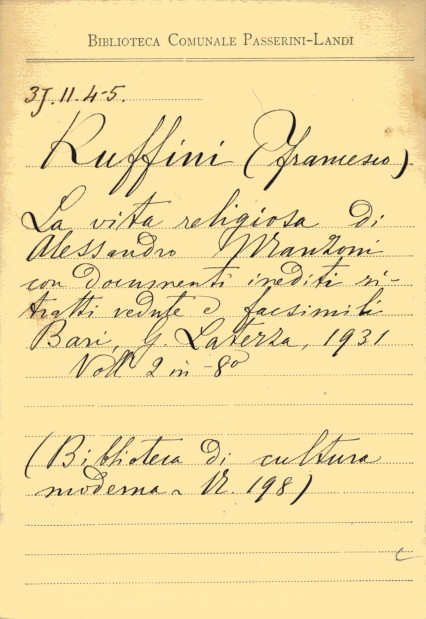 BIBLIOTECA COMUNALE PASSERINI-LANDI
3J.11.4-5.
Ruffini (Francesco)
La vita religiosa di
Alessandro Manzoni
con documenti inediti ri-
tratti vedute e facsimili
Bari, G. Laterza, 1931
Voll 2 in -8º
(Biblioteca di cultura
moderna - N. 198)